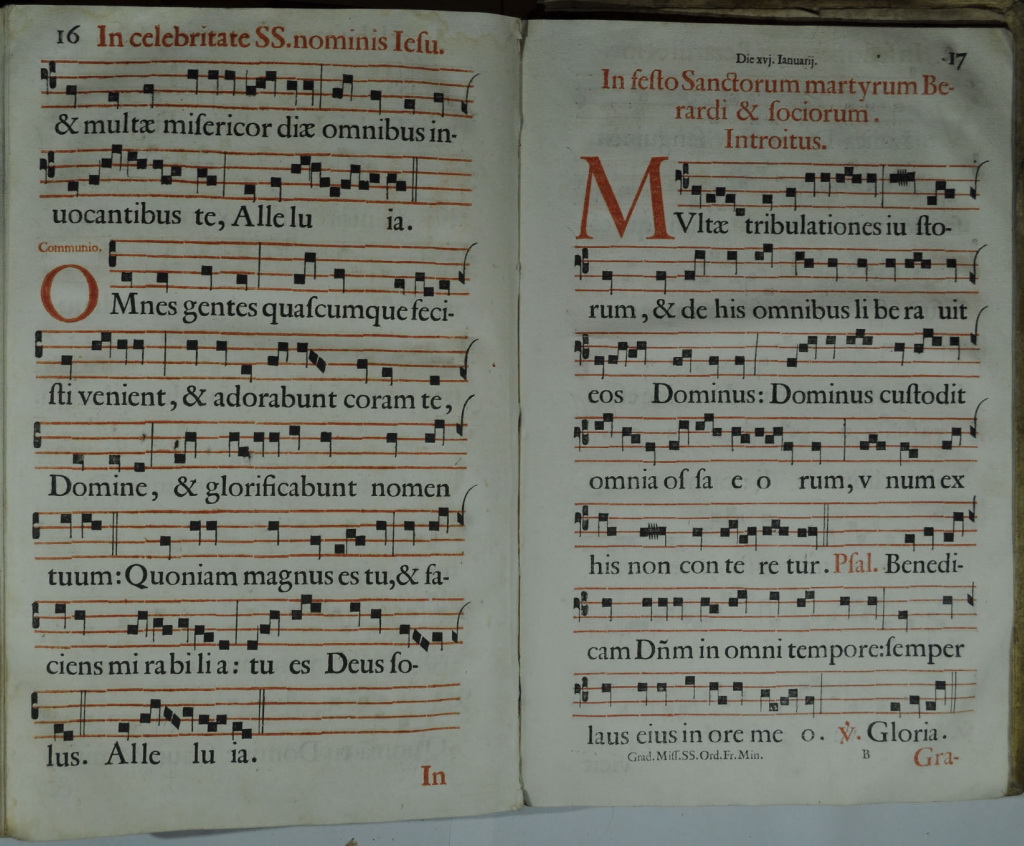 16 In celebritate SS.nominis Ieſu.
& multæ miſericor diæ omnibus in-
uocantibus te, Alle lu ia.
Communio.
OMnes gentes quaſcumque feci-
ſti venient, & adorabunt coram te,
Domine, & glorificabunt nomen
tuum: Quoniam magnus es tu,& fa-
ciens mi ra bi li a: tu es Deus ſo-
lus. Alle lu ia.
In
Die xvj. Ianuarij. 17
In feſto Sanctorum martyrum Be-
rardi & ſociorum.
Introitus.
MVltæ tribulationes iu ſto-
rum, & de his omnibus li be ra uit
eos Dominus: Dominus cuſtodit
omnia oſ ſa e o rum, v num ex
his non con te re tur. Pſal. Benedi-
cam Dñm in omni tempore:ſemper
laus eius in ore me o. ℣. Gloria.
Grad. Miſſ. SS. Ord. Fr. Min. B Gra-